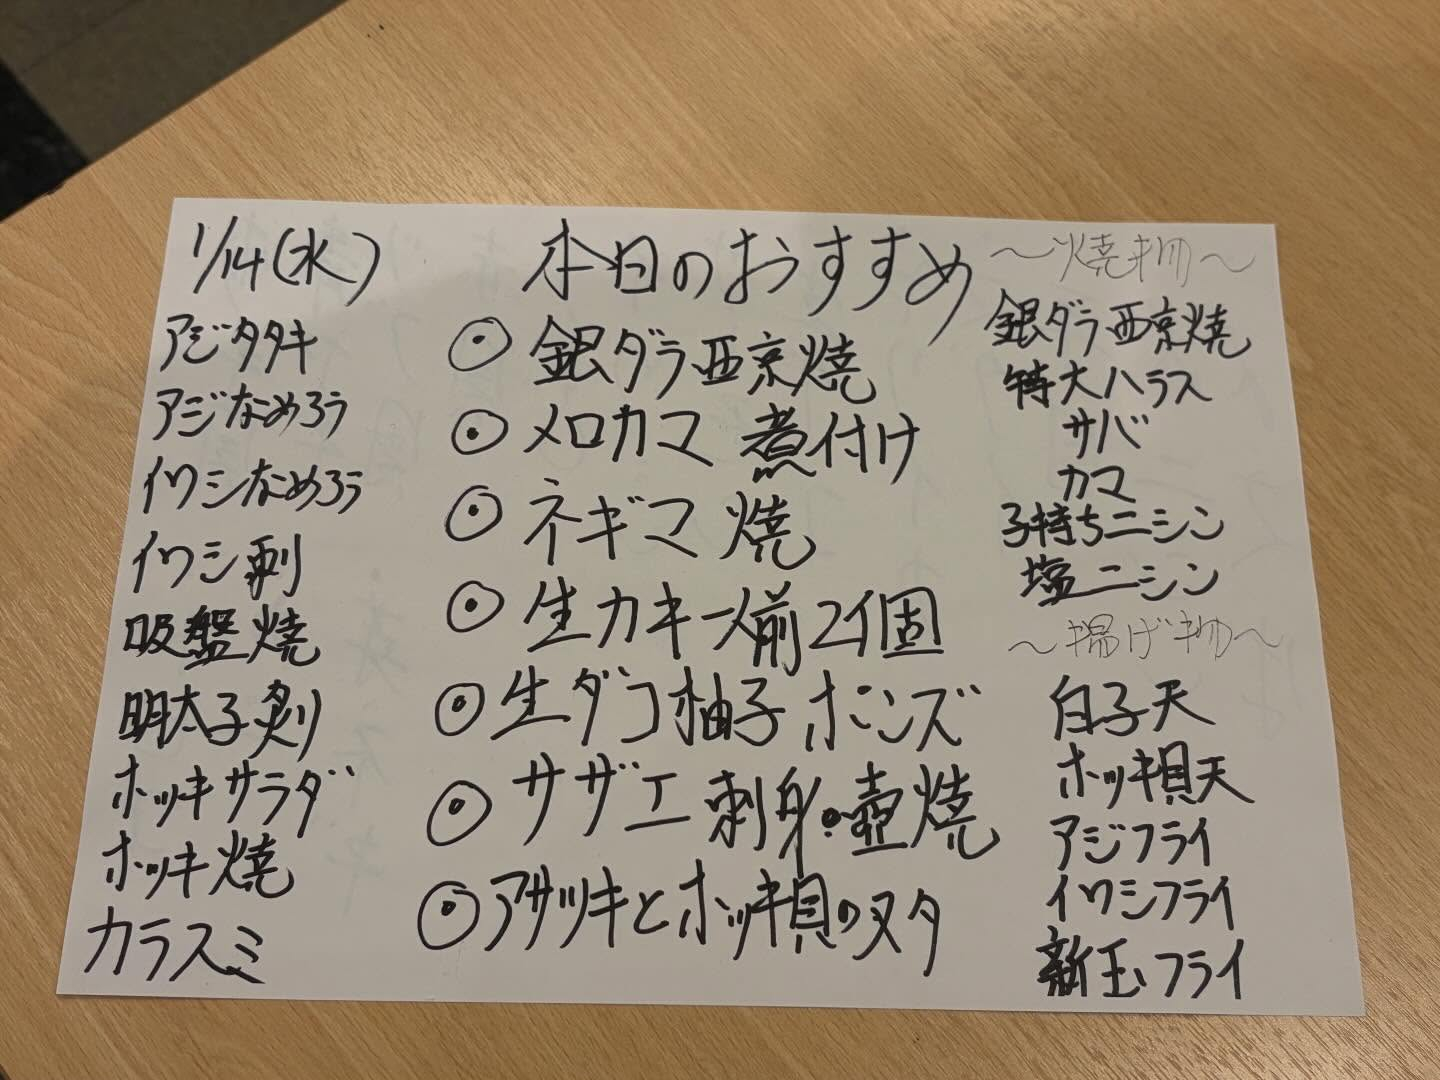 1/14(水)
アジタタキ
アジなめろう
イワシなめろう
イワシ刺
吸盤焼
明太子炙り
ホッキサラダ
ホッキ焼
カラスミ
本日のおすすめ
◎ 銀ダラ西京焼
◎ メロカマ 煮付け
◎ ネギマ焼
◎ 生カキ一人前2個
◎ 生ダコ柚子ポンズ
◎ サザエ刺身・壺焼
◎ アサツキとホッキ貝のヌタ
〜焼き物〜
銀ダラ西京焼
特大ハラス
サバ
カマ
子持ちニシン
塩ニシン
〜揚げ物〜
白子天
ホッキ貝天
アジフライ
イワシフライ
新玉フライ